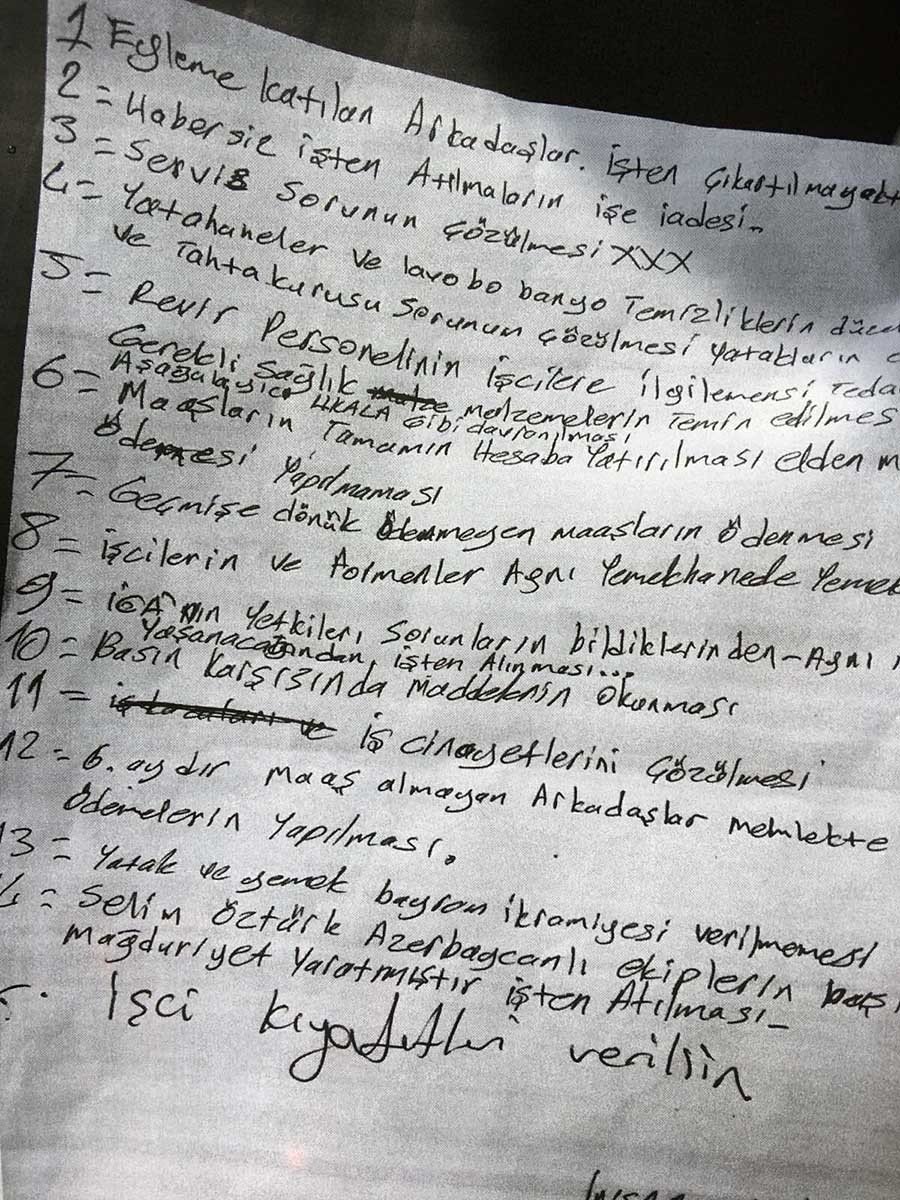 1 Eyleme katılan Arkadaşlar. işten çıkartılmayakt
2 = Habersiz işten Atılmaların işe iadesi.
3 = Servis Sorunun çözülmesi XXX
4 = Yatahaneler ve lavobo banyo Temizliklerin düze
ve Tahtakurusu sorunun çözülmesi yatakların
5 = Revir Personelinin işcilere ilgilemensi Teda
Gerekli Sağlık malze Malzemelerin Temin edilmes
Aşağılayici UKALA Gibi davranılması
6 = Maaşların Tamamın Hesaba Yatırılması elden m
ödemesi Yapılmaması
7 = Geçmişe dönük ödenmeyen maaşların ödenmesi
8 = işcilerin ve Formenler Aynı Yemekhanede Yemek
9 = iGA'nın Yetkileri Sorunların bildiklerinden - Aynı
Yaşanacağından, işten Alınması...
10 = Basın karşısında maddelenin okunması
11 = iş kazaları ve iş cinayetlerini çözülmesi
12 = 6. aydır maaş almayan Arkadaşlar memlekte
ödemelerin yapılması.
13 = Yatak ve yemek bayram ikramiyesi verilmemesi
4 = Selim Öztürk Azerbaycanlı ekiplerin
Mağduriyet Yaratmıştır işten Atılması -
İşci kıyafetleri verilsin